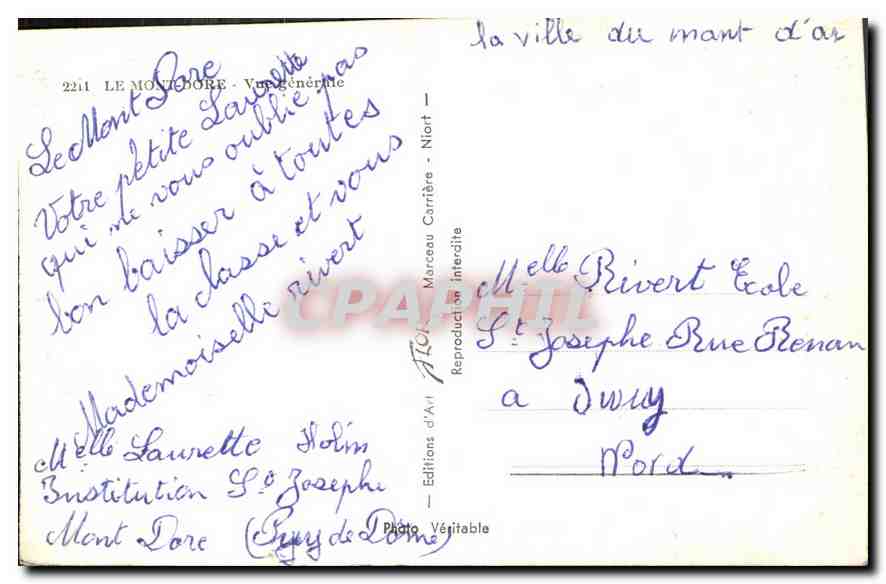 la ville du mant d'or
2211 LE MONT-DORE - Vue générale
Le Mont Dore
Votre petite Laurette
qui ne vous oublie pas
bon baisser à toutes
la classe et vous
Mademoiselle rivert
Melle Laurette
Institution St Josephe
Mont Dore (Puy de Dôme)
Photo Véritable
— Editions d'Art FLOR Marceau Carrière - Niort —
Reproduction interdite
Melle Rivert Ecole
St Josephe Rue Renan
a Iwuy
Nord
CPAPHIL